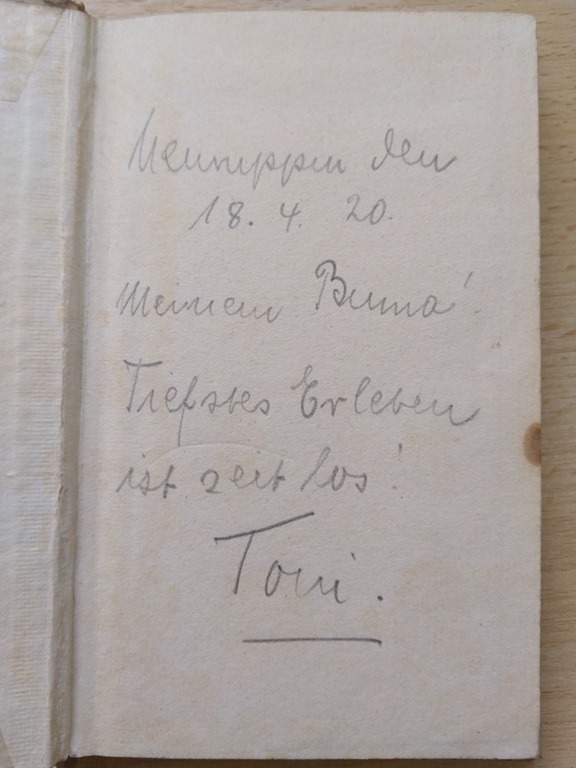 den
18. 4. 20.
Meinem Buma!
Tiefstes Erleben
ist zeitlos!
Toni.